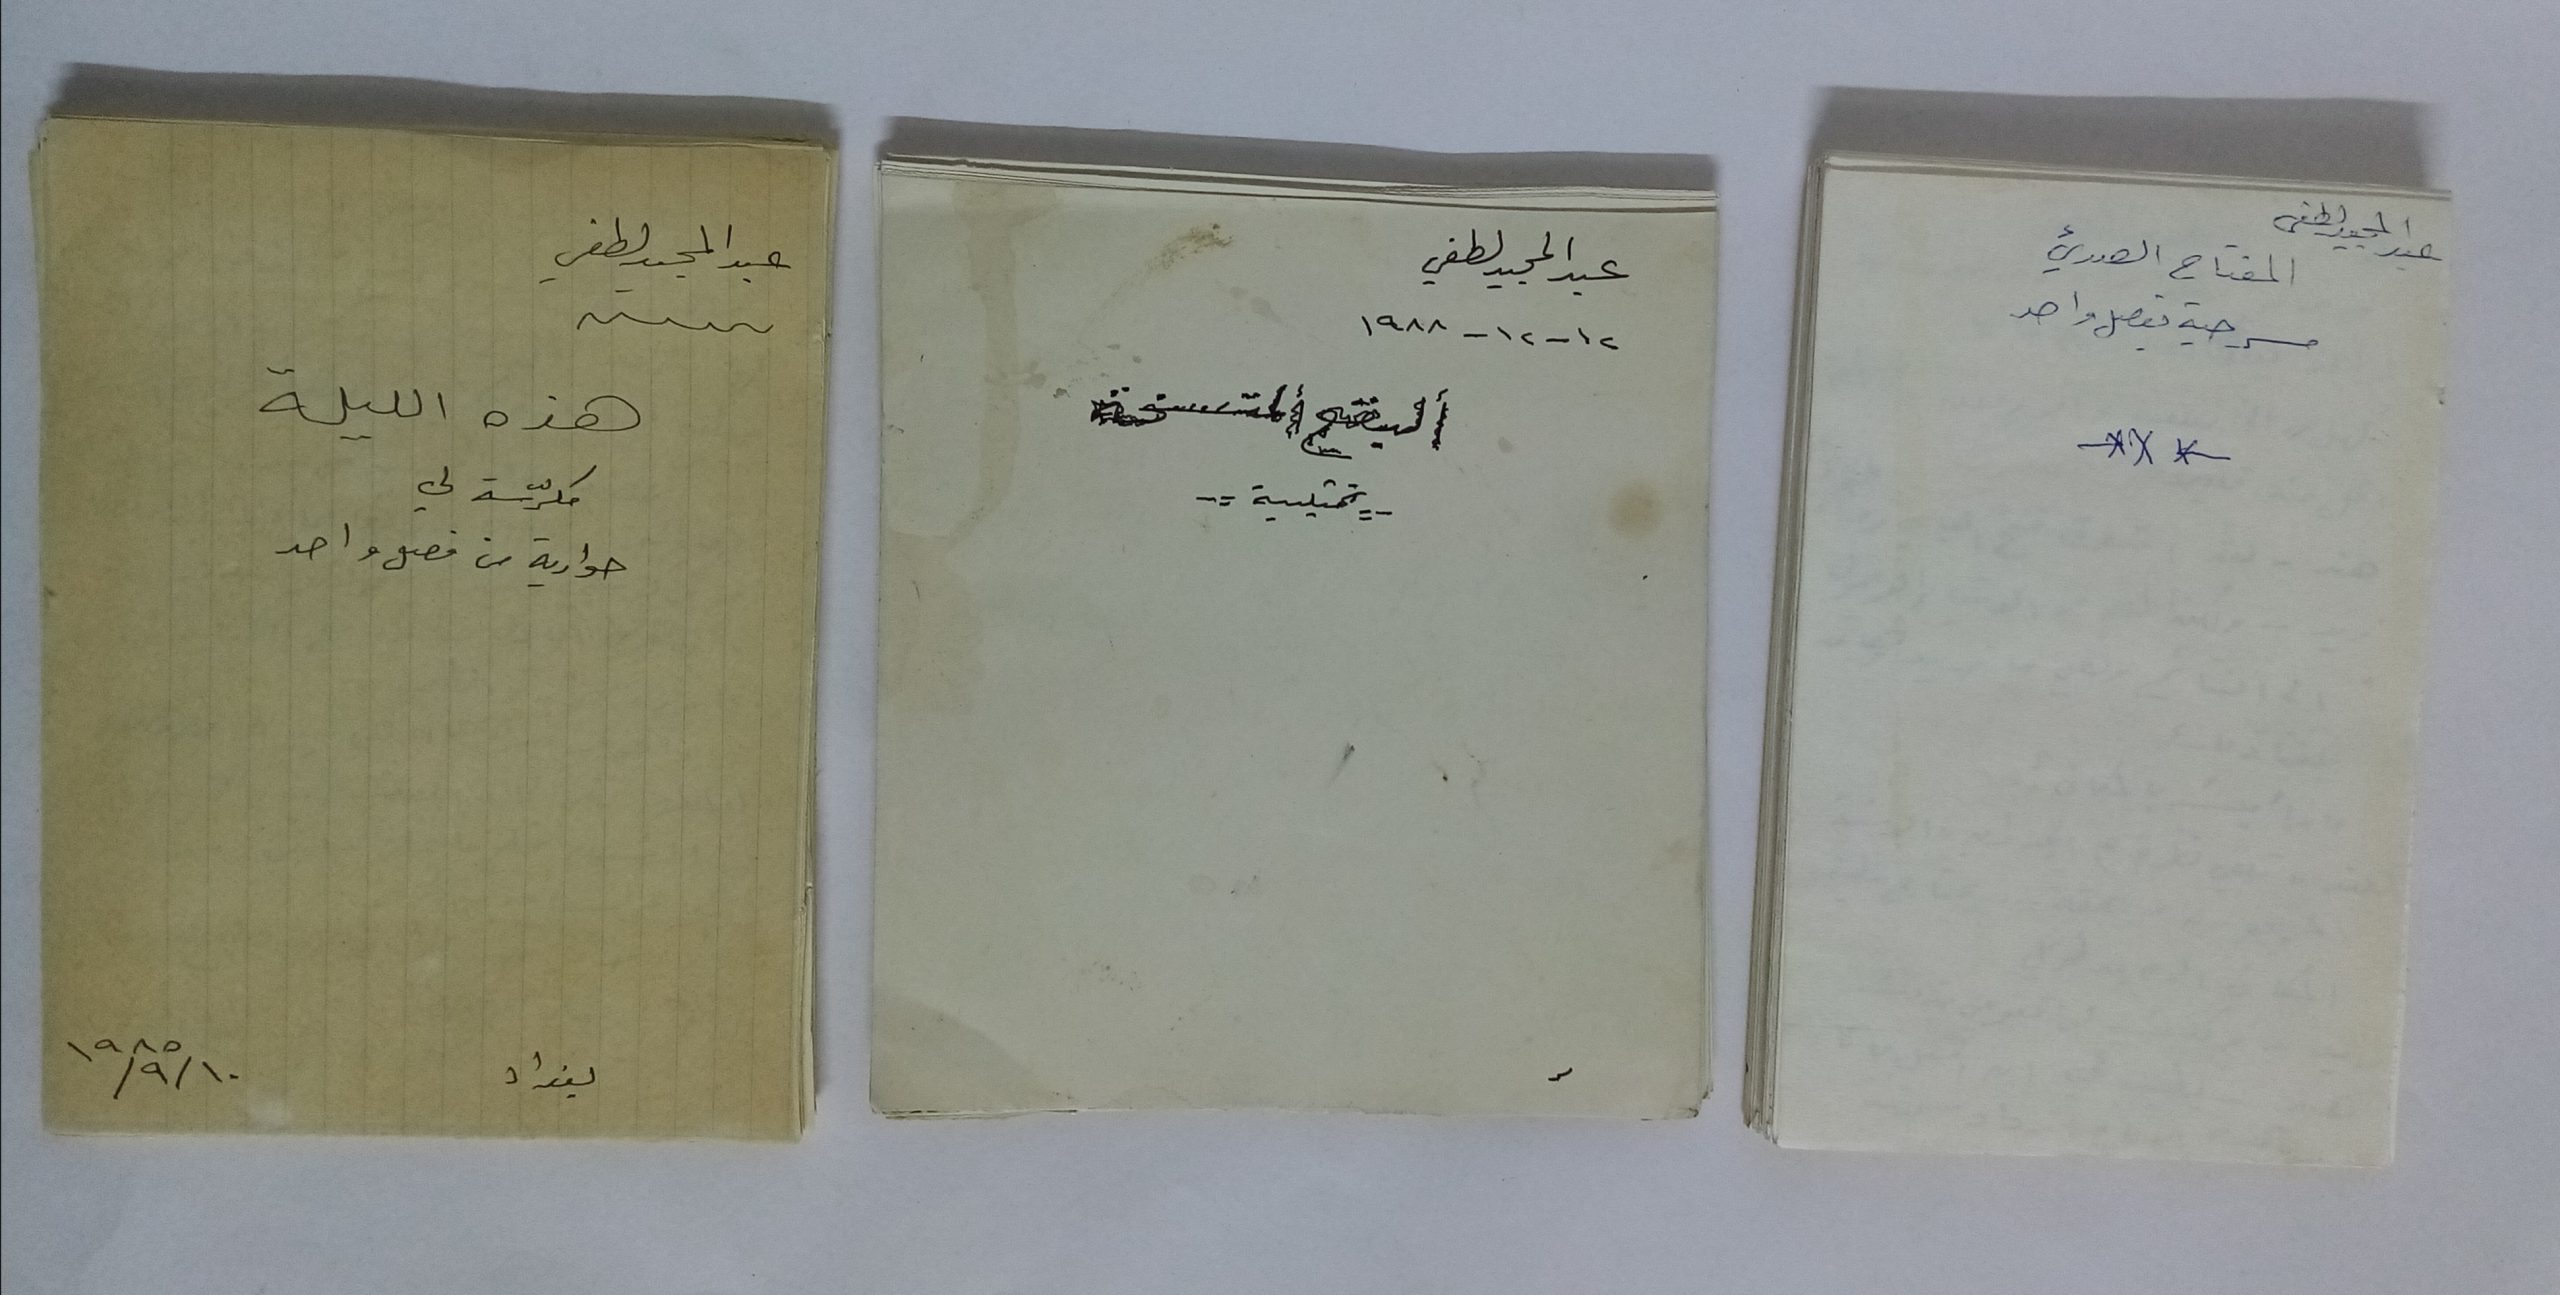 عبد المجيد لطفي
هذه الليلة
مكرّسة لي
حوارية من فصل واحد
بغداد
١٩٨٥/٩/١٠
عبد المجيد لطفي
١٢-١٢-١٩٨٨
ألبقع ألمتسخة
تمثيلية
عبد المجيد لطفي
المفتاح الصدئ
مسرحية بفصل واحد